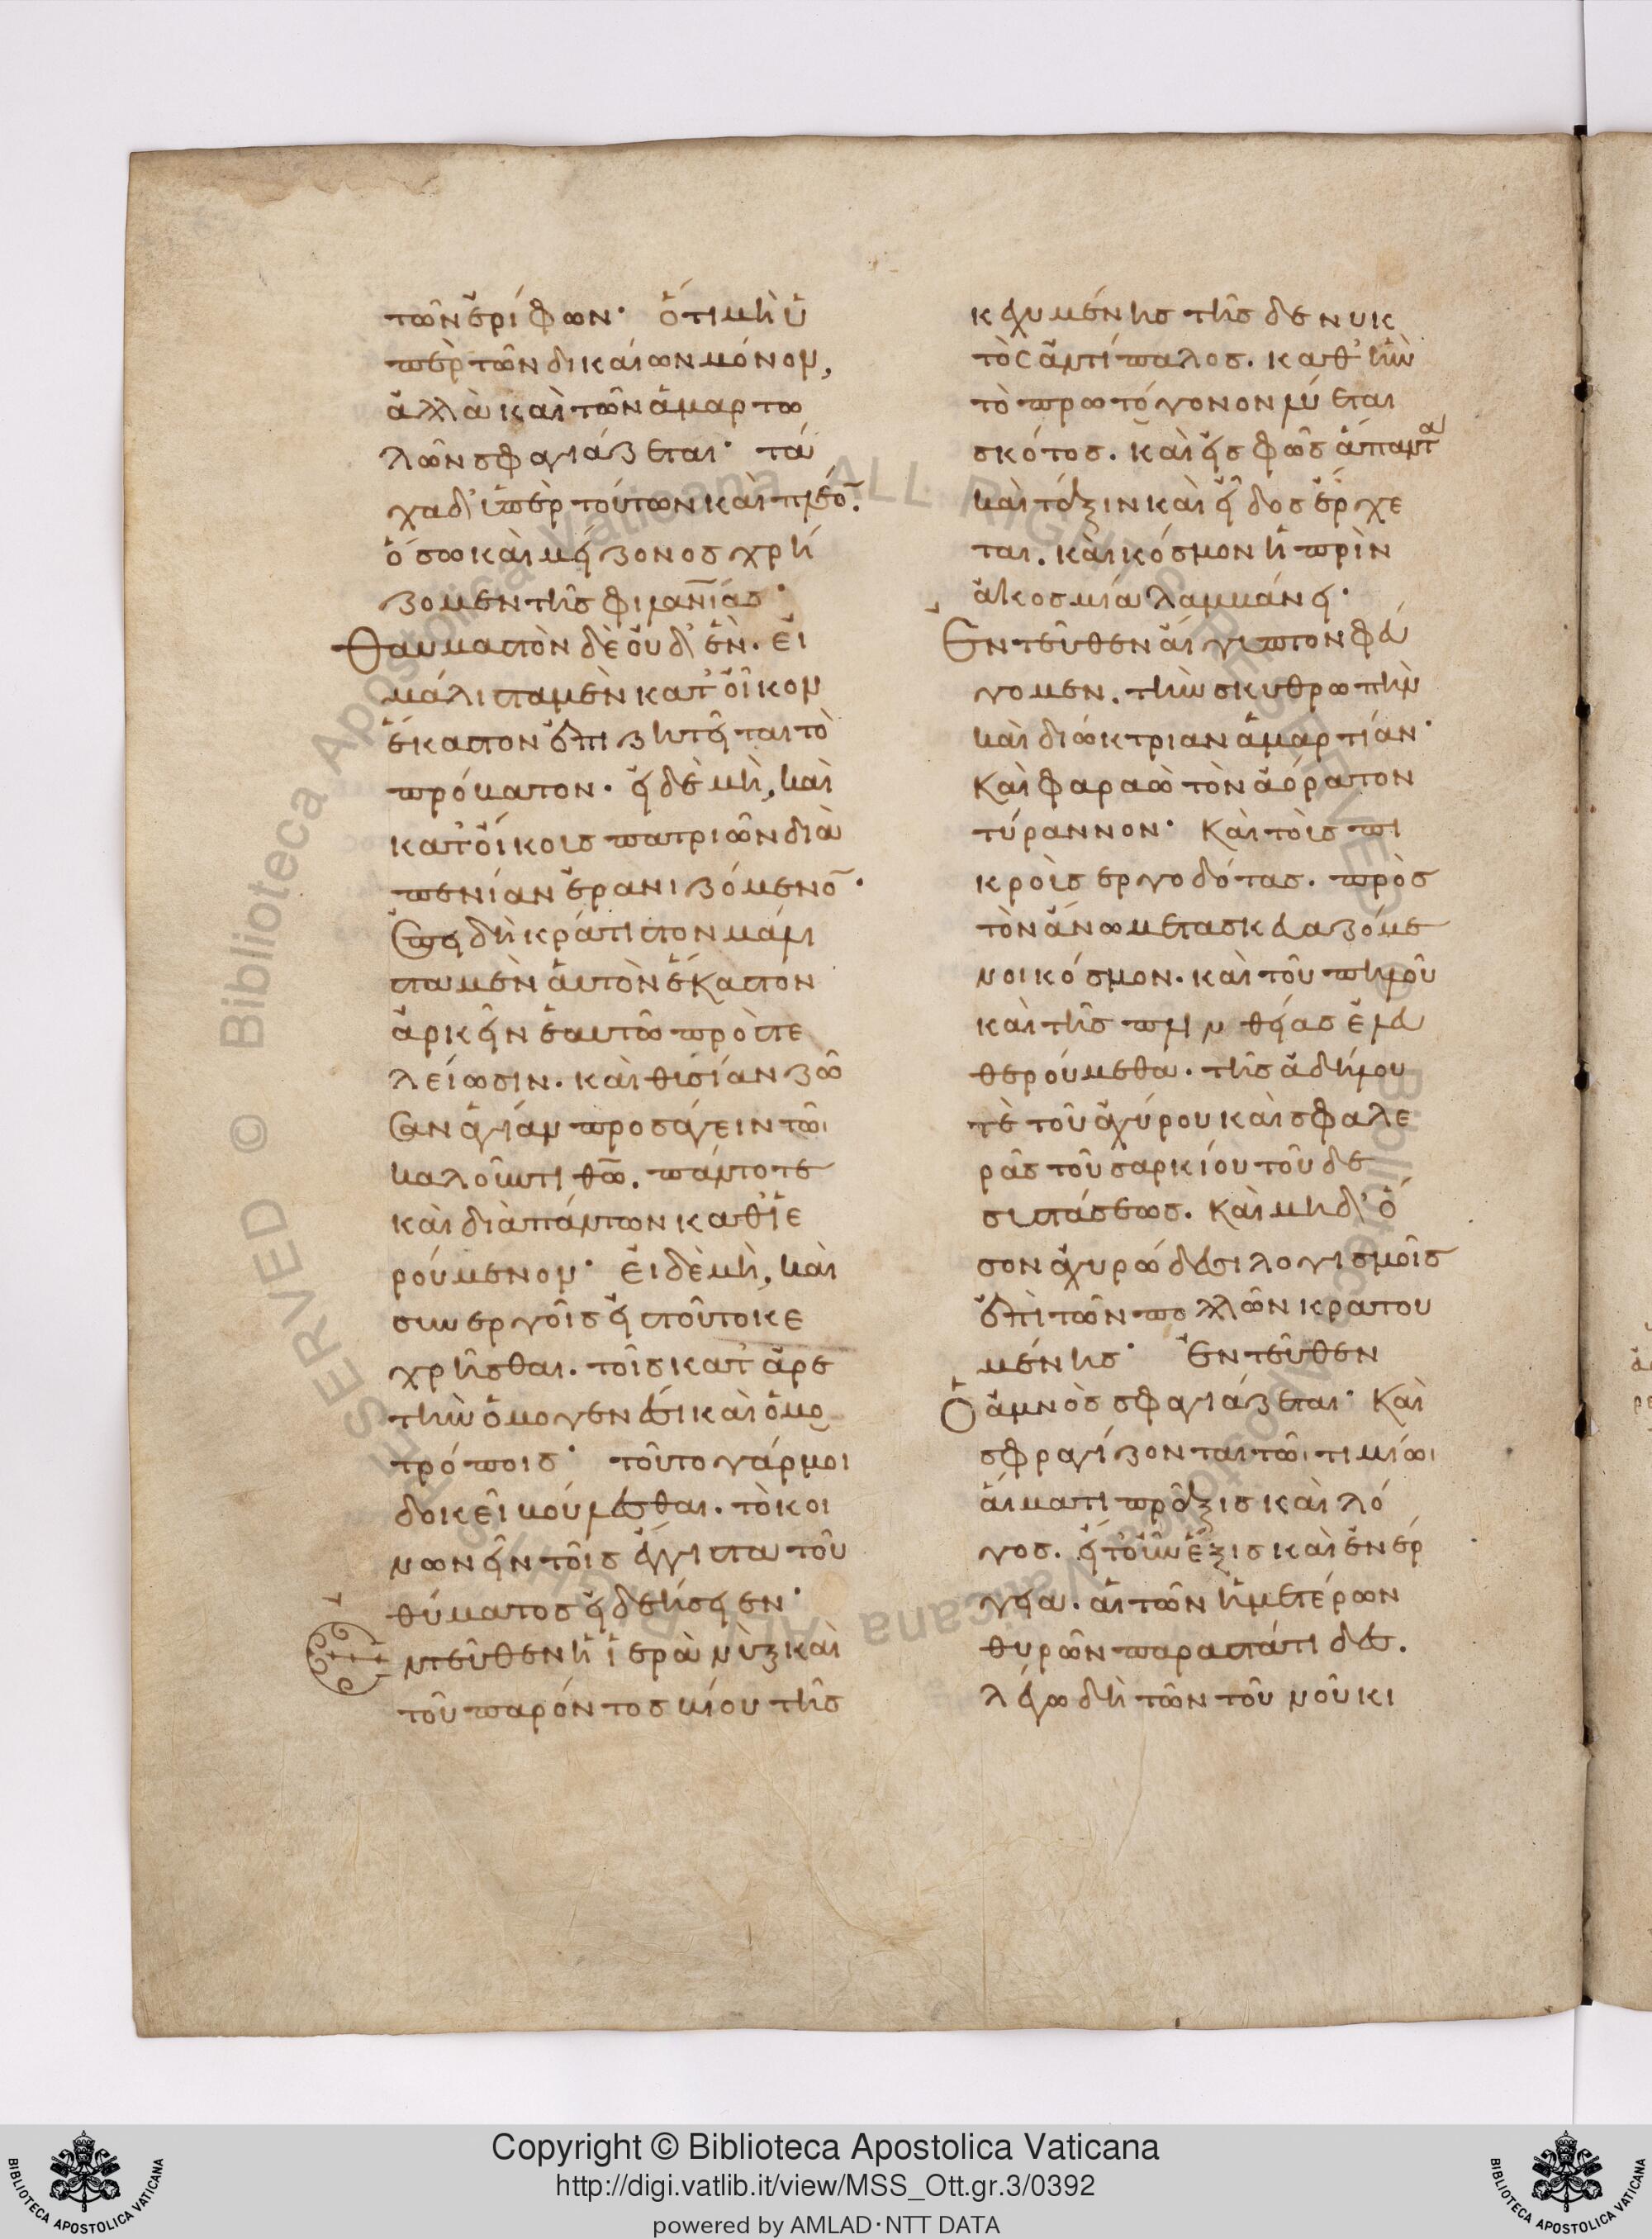 τῶν ἐρίφων· ὅτι μὴ ὑ
πὲρ τῶν δικαίων μόνον,
ἀλλὰ καὶ τῶν ἁμαρτω
λῶν σφαγιάζεται· τά
χα δ' ὑπὲρ τούτων καὶ πλέο̄.
ὅσω καὶ μείζονος χρή
ζομεν τῆς φιλανΐας·
Θαυμαστὸν δὲ οὐδ' ἓν. εἰ
μάλιστα μὲν κατ' οἶκον
ἕκαστον ἐπιζητεῖται τὸ
πρόβατον· εἰ δὲ μὴ, καὶ
κατ' οἴκοις πατριῶν διὰ
πενίαν ἐρανιζόμενο̄·
ἐπεὶ δὴ κράτιστον μάλι
στα μὲν αὐτὸν ἕκαστον
ἀρκεῖν ἑαυτῶ πρὸς τε
λείωσιν. καὶ θυσίαν ζῶ
σαν ἁγίαν προσάγειν τῶι
καλοῦντι θ̅ω̅. πάντοτε
καὶ διὰ πάντων καθϊε
ρούμενον· εἰ δὲ μὴ, καὶ
συνεργοῖς εἰς τοῦτο κε
χρῆσθαι. τοῖς κατ' ἀρε
τὴν ὁμογενέσι καὶ ὁμο
τρόποις· τοῦτο γάρ μοι
δοκεῖ βούλεσθαι. τὸ κοι
νωνεῖν τοῖς ἔγγιστα τοῦ
θύματος εἰ δεήσειεν·
Ἐντεῦθεν ἡ ἱερὰ νὺξ καὶ
τοῦ παρόντος βίου τῆς
κεχυμένης τῆσδε νυκ
τὸς ἀντίπαλος. καθ' ἣν
τὸ πρωτόγονον λύεται
σκότος. καὶ εἰς φῶς ἅπαντα
καὶ τάξιν καὶ εἶδος ἔρχε
ται. καὶ κόσμον ἡ πρὶν
ἀκοσμία λαμβάνει·
Ἐντεῦθεν αἴγυπτον φεύ
γομεν. τὴν σκυθρωπὴν
καὶ διώκτριαν ἁμαρτίαν·
Καὶ φαραὼ τὸν ἀόρατον
τύραννον· Καὶ τοὶς πι
κροὶς εργοδότας. πρὸς
τὸν ἄνω μετασκευαζόμε
νοι κόσμον. καὶ τοῦ πηλοῦ
καὶ τῆς πλινθείας ἐλευ
θερούμεθα. τῆς ἀδήμου
τὲ τοῦ ἀχύρου καὶ σφαλε
ρᾶς τοῦ σαρκίου τοῦδε
συστάσεως. Καὶ μηδ' ὅ
σον ἀχυρώδεσι λογισμοῖς
ἐπὶ τῶν πολλῶν κρατου
μένης· Ἐντεῦθεν
Ὁ ἀμνὸς σφαγιάζεται· Καὶ
σφραγίζονται τῶι τιμίωι
αἵματι πρᾶξις καὶ λό
γος. εἴτ' οὖν ἕξις καὶ ἐνέρ
γεια. αἱ τῶν ἡμετέρων
θυρῶν παραστάτιδες.
λέγω δὴ τῶν τοῦ νοῦ κι
Copyright © Biblioteca Apostolica Vaticana
http://digi.vatlib.it/view/MSS_Ott.gr.3/0392
powered by AMLAD·NTT DATA